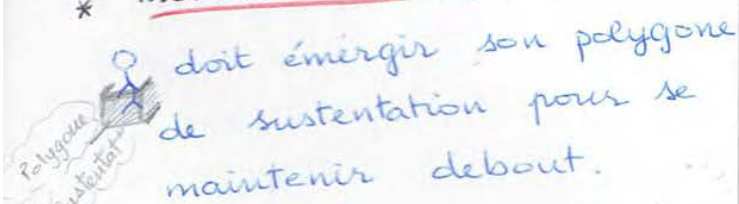 *
doit émergir son polygone
de sustentation pour se
maintenir debout.
Polygone
sustentat°